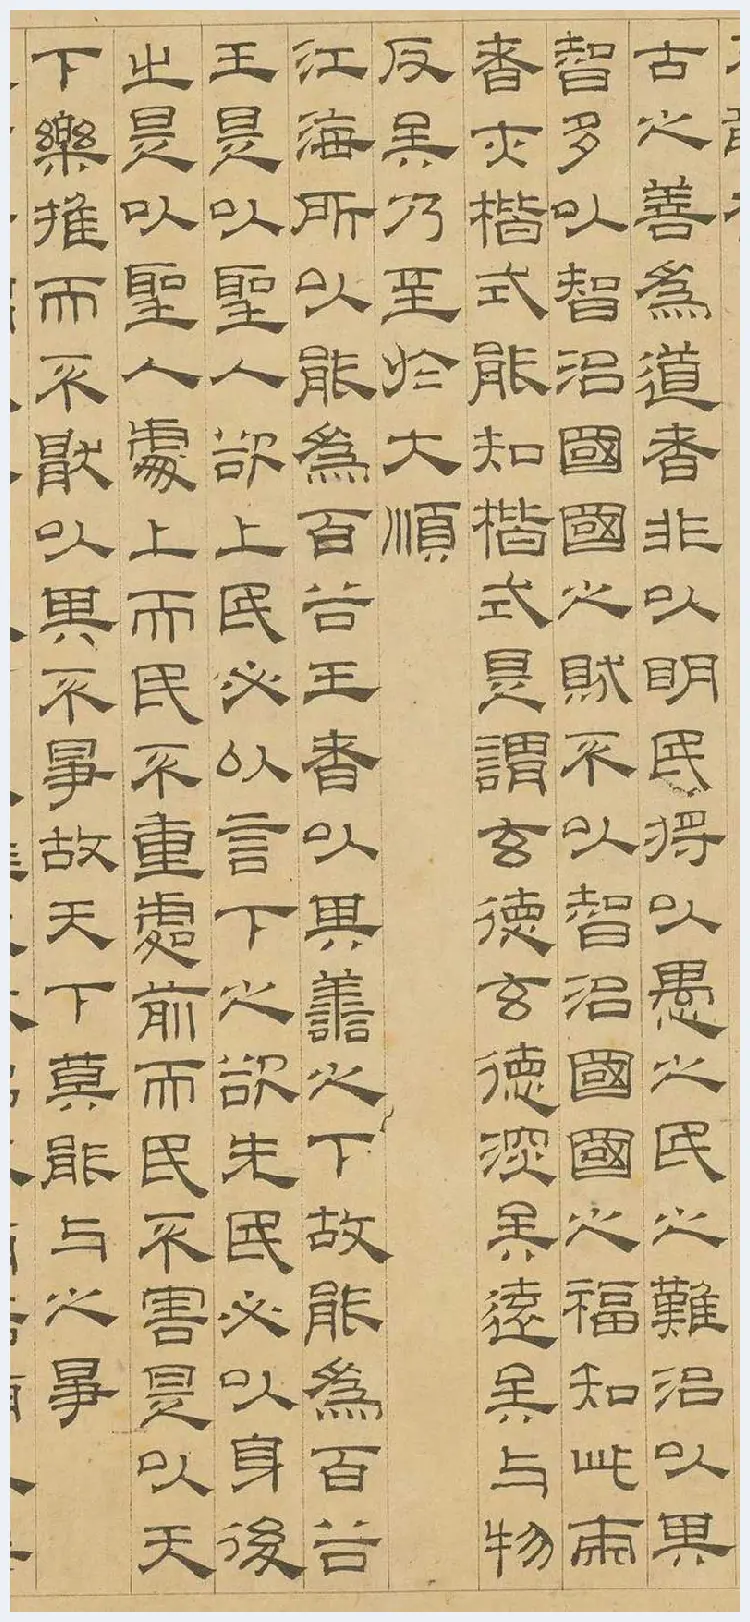 古之善爲道者非以明民將以愚之民之難治以其
智多以智治國國之賊不以智治國國之福知此兩
者亦楷式能知楷式是謂玄德玄德深矣遠矣与物
反矣乃至於大順
江海所以能爲百谷王者以其善之下故能爲百谷
王是以聖人欲上民必以言下之欲先民必以身後
之是以聖人處上而民不重處前而民不害是以天
下樂推而不厭以其不爭故天下莫能与之爭